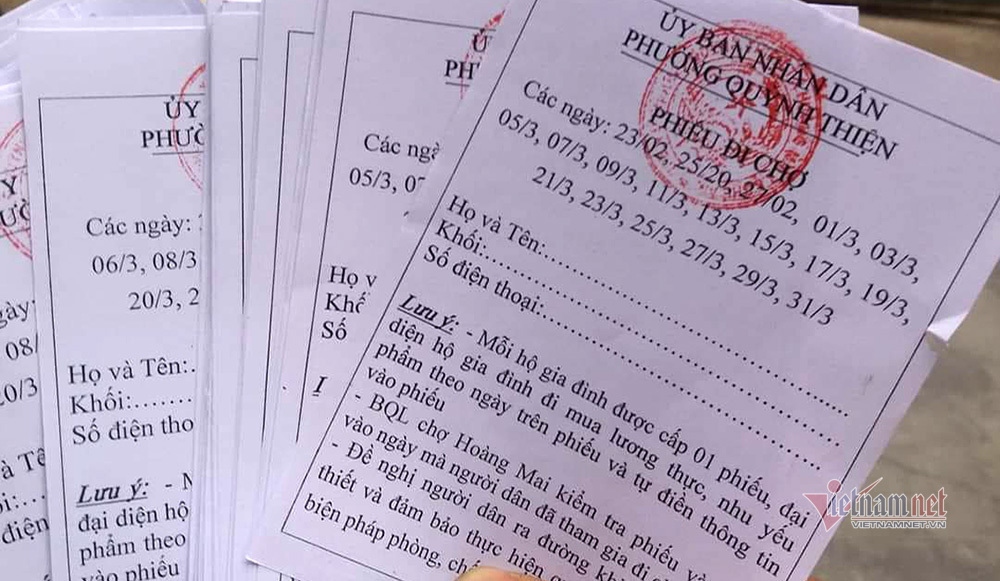 ỦY BAN NHÂN DÂN
PHƯỜNG QUỲNH THIỆN
PHIẾU ĐI CHỢ
Các ngày: 23/02, 25/20, 27/02, 01/3, 03/3,
05/3, 07/3, 09/3, 11/3, 13/3, 15/3, 17/3, 19/3,
21/3, 23/3, 25/3, 27/3, 29/3, 31/3
Họ và Tên:
Khối:
Số điện thoại:
Lưu ý: - Mỗi hộ gia đình được cấp 01 phiếu, đại
diện hộ gia đình đi mua lương thực, nhu yếu
phẩm theo ngày trên phiếu và tự điền thông tin
vào phiếu
- BQL chợ Hoàng Mai kiểm tra phiếu và
vào ngày mà người dân đã tham gia đi
- Đề nghị người dân ra đường
thiết và đảm bảo thực hiện
biện pháp phòng,
ỦY
PHƯỜ
Các ngày:
06/3, 08/3
20/3, 2
Họ và Tên:
Khối:
Số điện tho
Lưu ý: -
đại diện hộ
phẩm theo
vào phiếu
Các ngà
05/3, 07
Họ và
Khố
Số
08/
20/3
vietnamnet
VIETNAMNET.VN